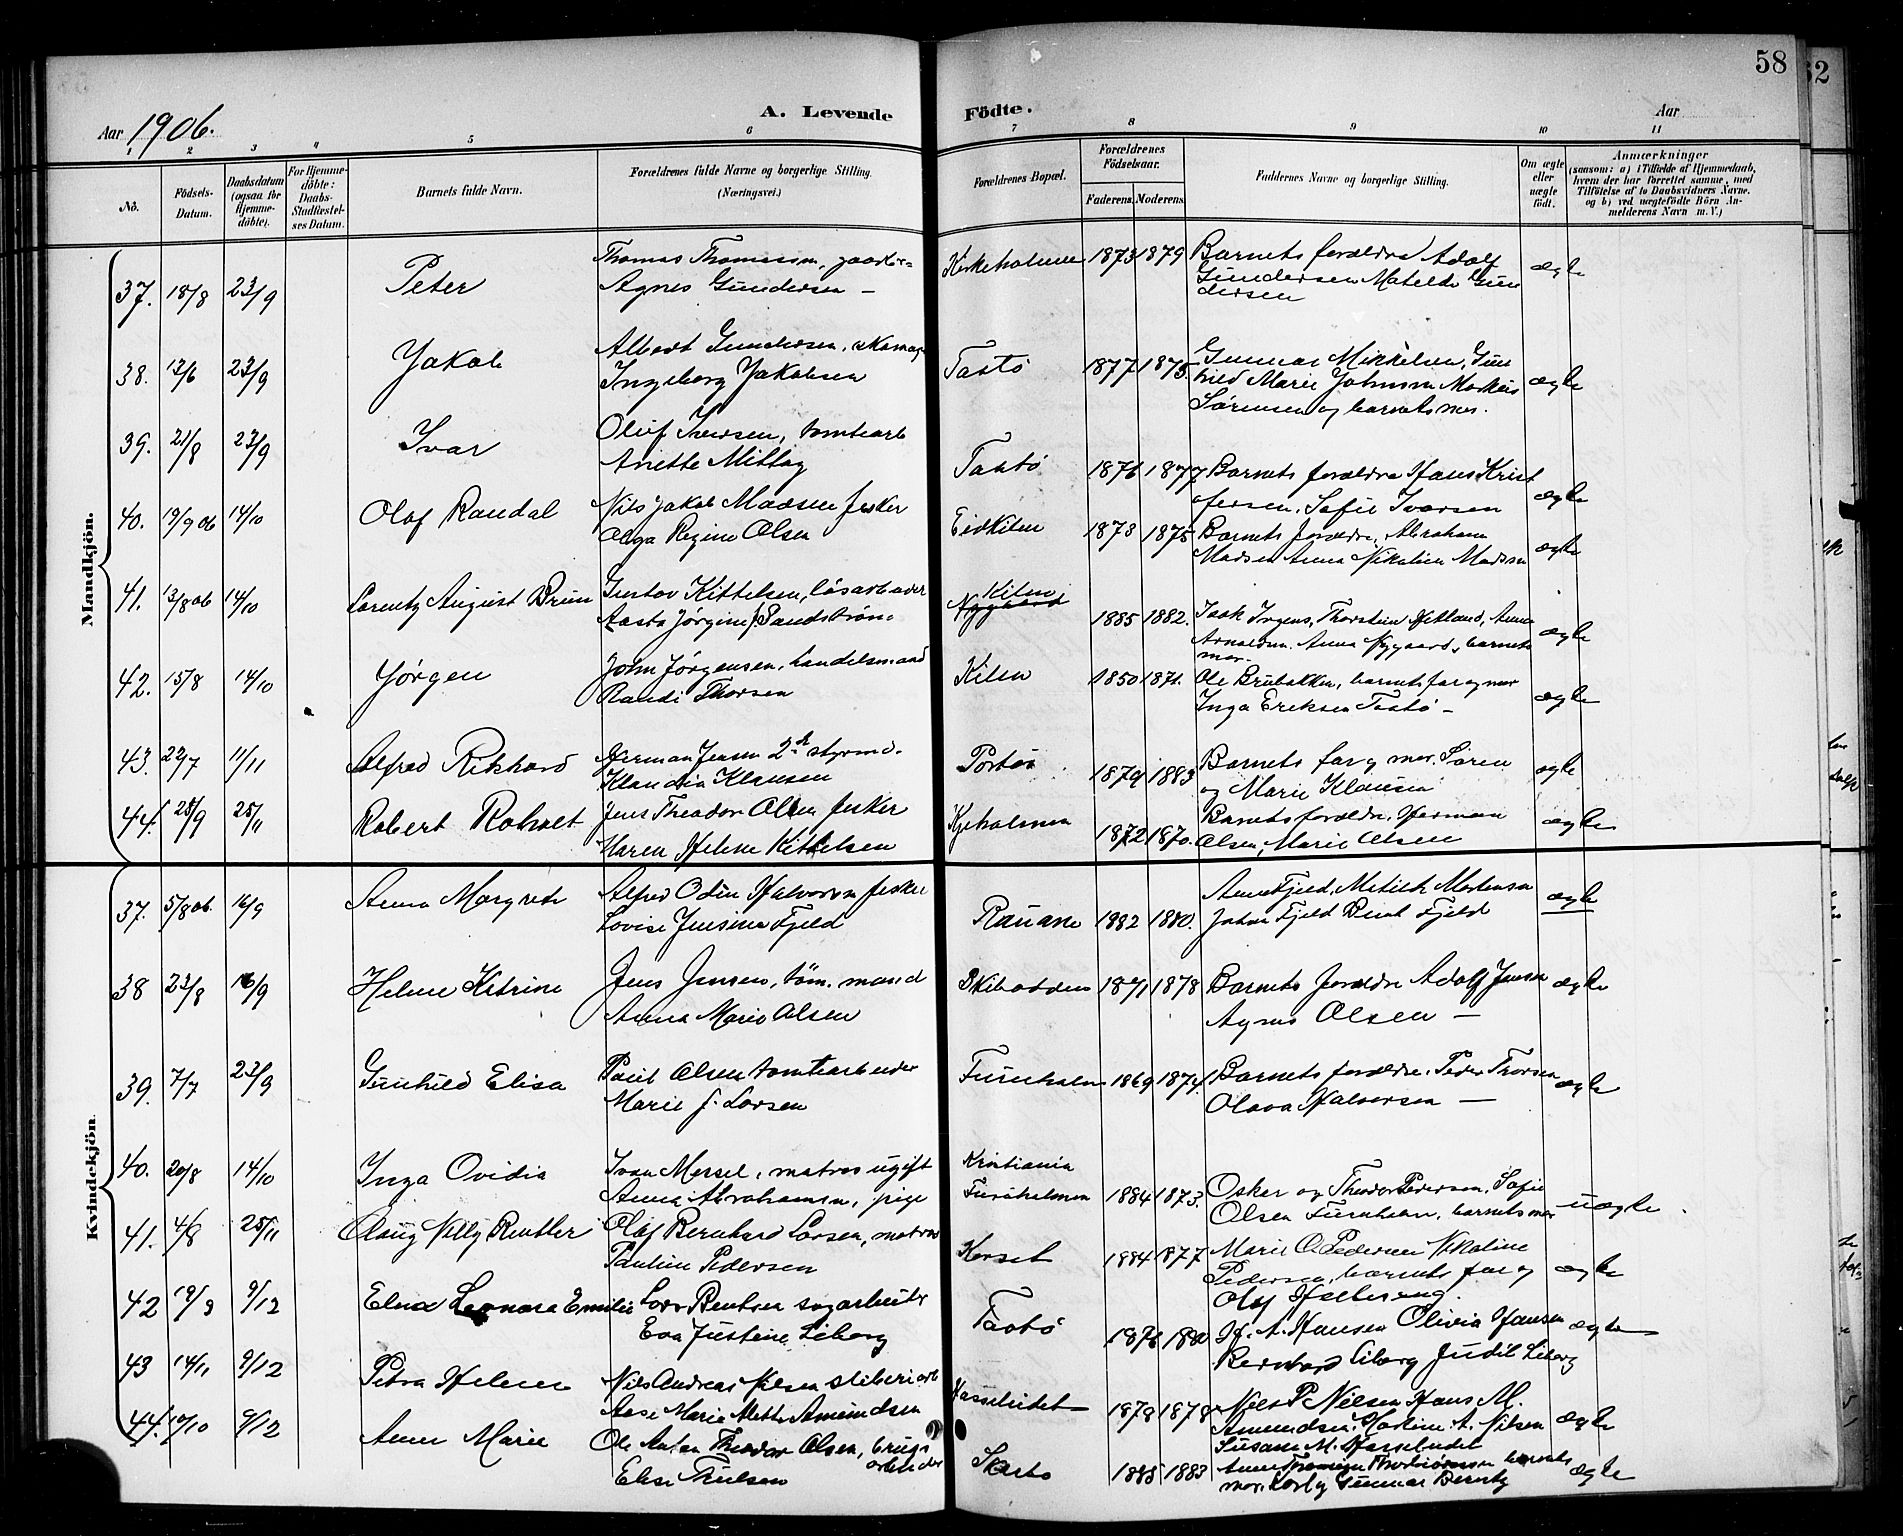 58
62
Aar 1906.
A. Levende
Födte.
Aar
1 2 3 4 5 6
7 8 9 10 11
Nô.
Födsels-
Datum.
Daabsdatum
(ogsaa for
Hjemme-
döbte).
For Hjemme-
döbte:
Daabs-
Stadfæstel-
ses Datum.
Barnets fulde Navn.
Forældrenes fulde Navne og borgerlige Stilling.
(Næringsvei.)
Forældrenes Bopæl.
Forældrenes
Födselsaar.
Faderens.
Moderens.
Faddernes Navne og borgerlige Stilling.
Om ægte
eller
uægte
födt.
Anmærkninger
(saasom: a) i Tilfælde af Hjemmedaab,
hvem der har forrettet samme, med
Tilföielse af to Daabsvidners Navne.
og b) ved uægtefödte Börn An-
melderens Navn m. V.)
Mandkjön.
37. 18/8 23/9 Peter
Agnes Gundersen –
1873 1879 Barnets forældre Adolf
Gundersen Matilde Gun
dersen
ægte
38. 12/6 23/9 Jakob
Albert Gundersen, skomag
Ingeborg Jakobsen
Tastö 1877 1875.
Gunnar Mikkelsen, Gun
hild Marie Johnsen Markus
Sörensen og barnets mor.
ægte
39. 21/8 23/9 Ivar
Oluf Iversen, tomtearb
Anette Mittag
Tastö 1876 1877 Barnets forældre Hans Krist
fersen, Sofie Iversen
ægte
40. 19/9 06 14/10 Olaf Randal
Nils Jakob Madsen fisker
Olga Regine Olsen
Eidkilen 1878 1875 Barnets forældre, Abraham
Madsen Anna Nikoline Madsen
ægte
41. 13/8 06 14/10 Lorentz August Brun
Gustav Kittelsen, lösarbeider
Aasta Jörgine Sandström
Kilen
Nygaard
1885 1882. Isak Irgens, Thorstein Hetland, Anna
Arnoldsen. Anna Nygaard, barnets
mor.
ægte
42. 15/8 14/10 Jörgen
John Jörgensen, handelsmand
Randi Thorsen
Kilen 1850 1871. Ole Brubakken, barnets far og mor
Inga Eriksen Tastö –
ægte
43. 22/7 11/11 Alfred Rikhard
Herman Jensen 2den styrmd.
Klaudia Klausen
Portör 1879 1883 Barnets far og mor. Sören
og Marie Klausen
ægte
44. 28/9 25/11 Robert Rohalt
Jens Theodor Olsen fisker
Karen Helene Kittelsen
Kjeholmen 1872 1870. Barnets forældre, Herman
Olsen, Marie Olsen
ægte
Kvindekjön.
37. 5/8 06. 16/9 Anna Margrete
Alfred Odin Halvorsen fisker
Lovise Jensine Fjeld
Rauane 1882 1880.
Anne Fjeld, Metilde Mortensen
Johan Fjeld Berut Fjeld
ægte
38 23/8 16/9 Helene Katrine
Jens Jensen, töm. mand
Anna Marie Olsen
Skibodden 1871 1878 Barnets forældre Adolf Jensen
Agnes Olsen –
ægte
39. 7/7 23/9 Gunhild Elisa
Paul Olsen tomtearbeider
Marie J. Larsen
Furuholmen 1869 1874. Barnets forældre. Peder Thorsen
Olava Halvorsen –
ægte
40. 20/8 14/10 Inga Ovidia
Ivan Mersel, matros ugift
Anna Abrahamsen, pige
Kristiania
Furuholmen 1884 1873.
Oskar og Theodor Pedersen, Sofie
Olsen Furuholmen, barnets mor
uægte
41. 4/8 25/11 Olaug Nelly Renther
Olaf Bernhard Larsen, matros
Pauline Pedersen
Korset 1884 1877 Marie O Pedersen Nikoline
Pedersen, barnets far og
Olaf Helberseng.
ægte
42 19/9 9/12 Elna Leonora Emilie
Lars Berntsen sagarbeider
Eva Justine Liborg
Tastö 1876 1880 H. A. Hansen Olivia Hansen
Bernhard Liborg Judit Liborg
ægte
43 14/11 9/12 Petra Helene
Nils Andreas Nilsen sliberiarb
Aase Marie Mette Amundsen
Hasseludet 1878 1878 Nils P. Nilsen Hans M.
Amundsen, Martine A. Nilsen
Susane M. Hasseludet
ægte
44. 10/10 9/12 Anne Marie
Ole Anton Theodor Olsen, brugs
arbeider
Elise Nulsen
1885 1883
mor, Karl og Gunnar Berntz
ægte